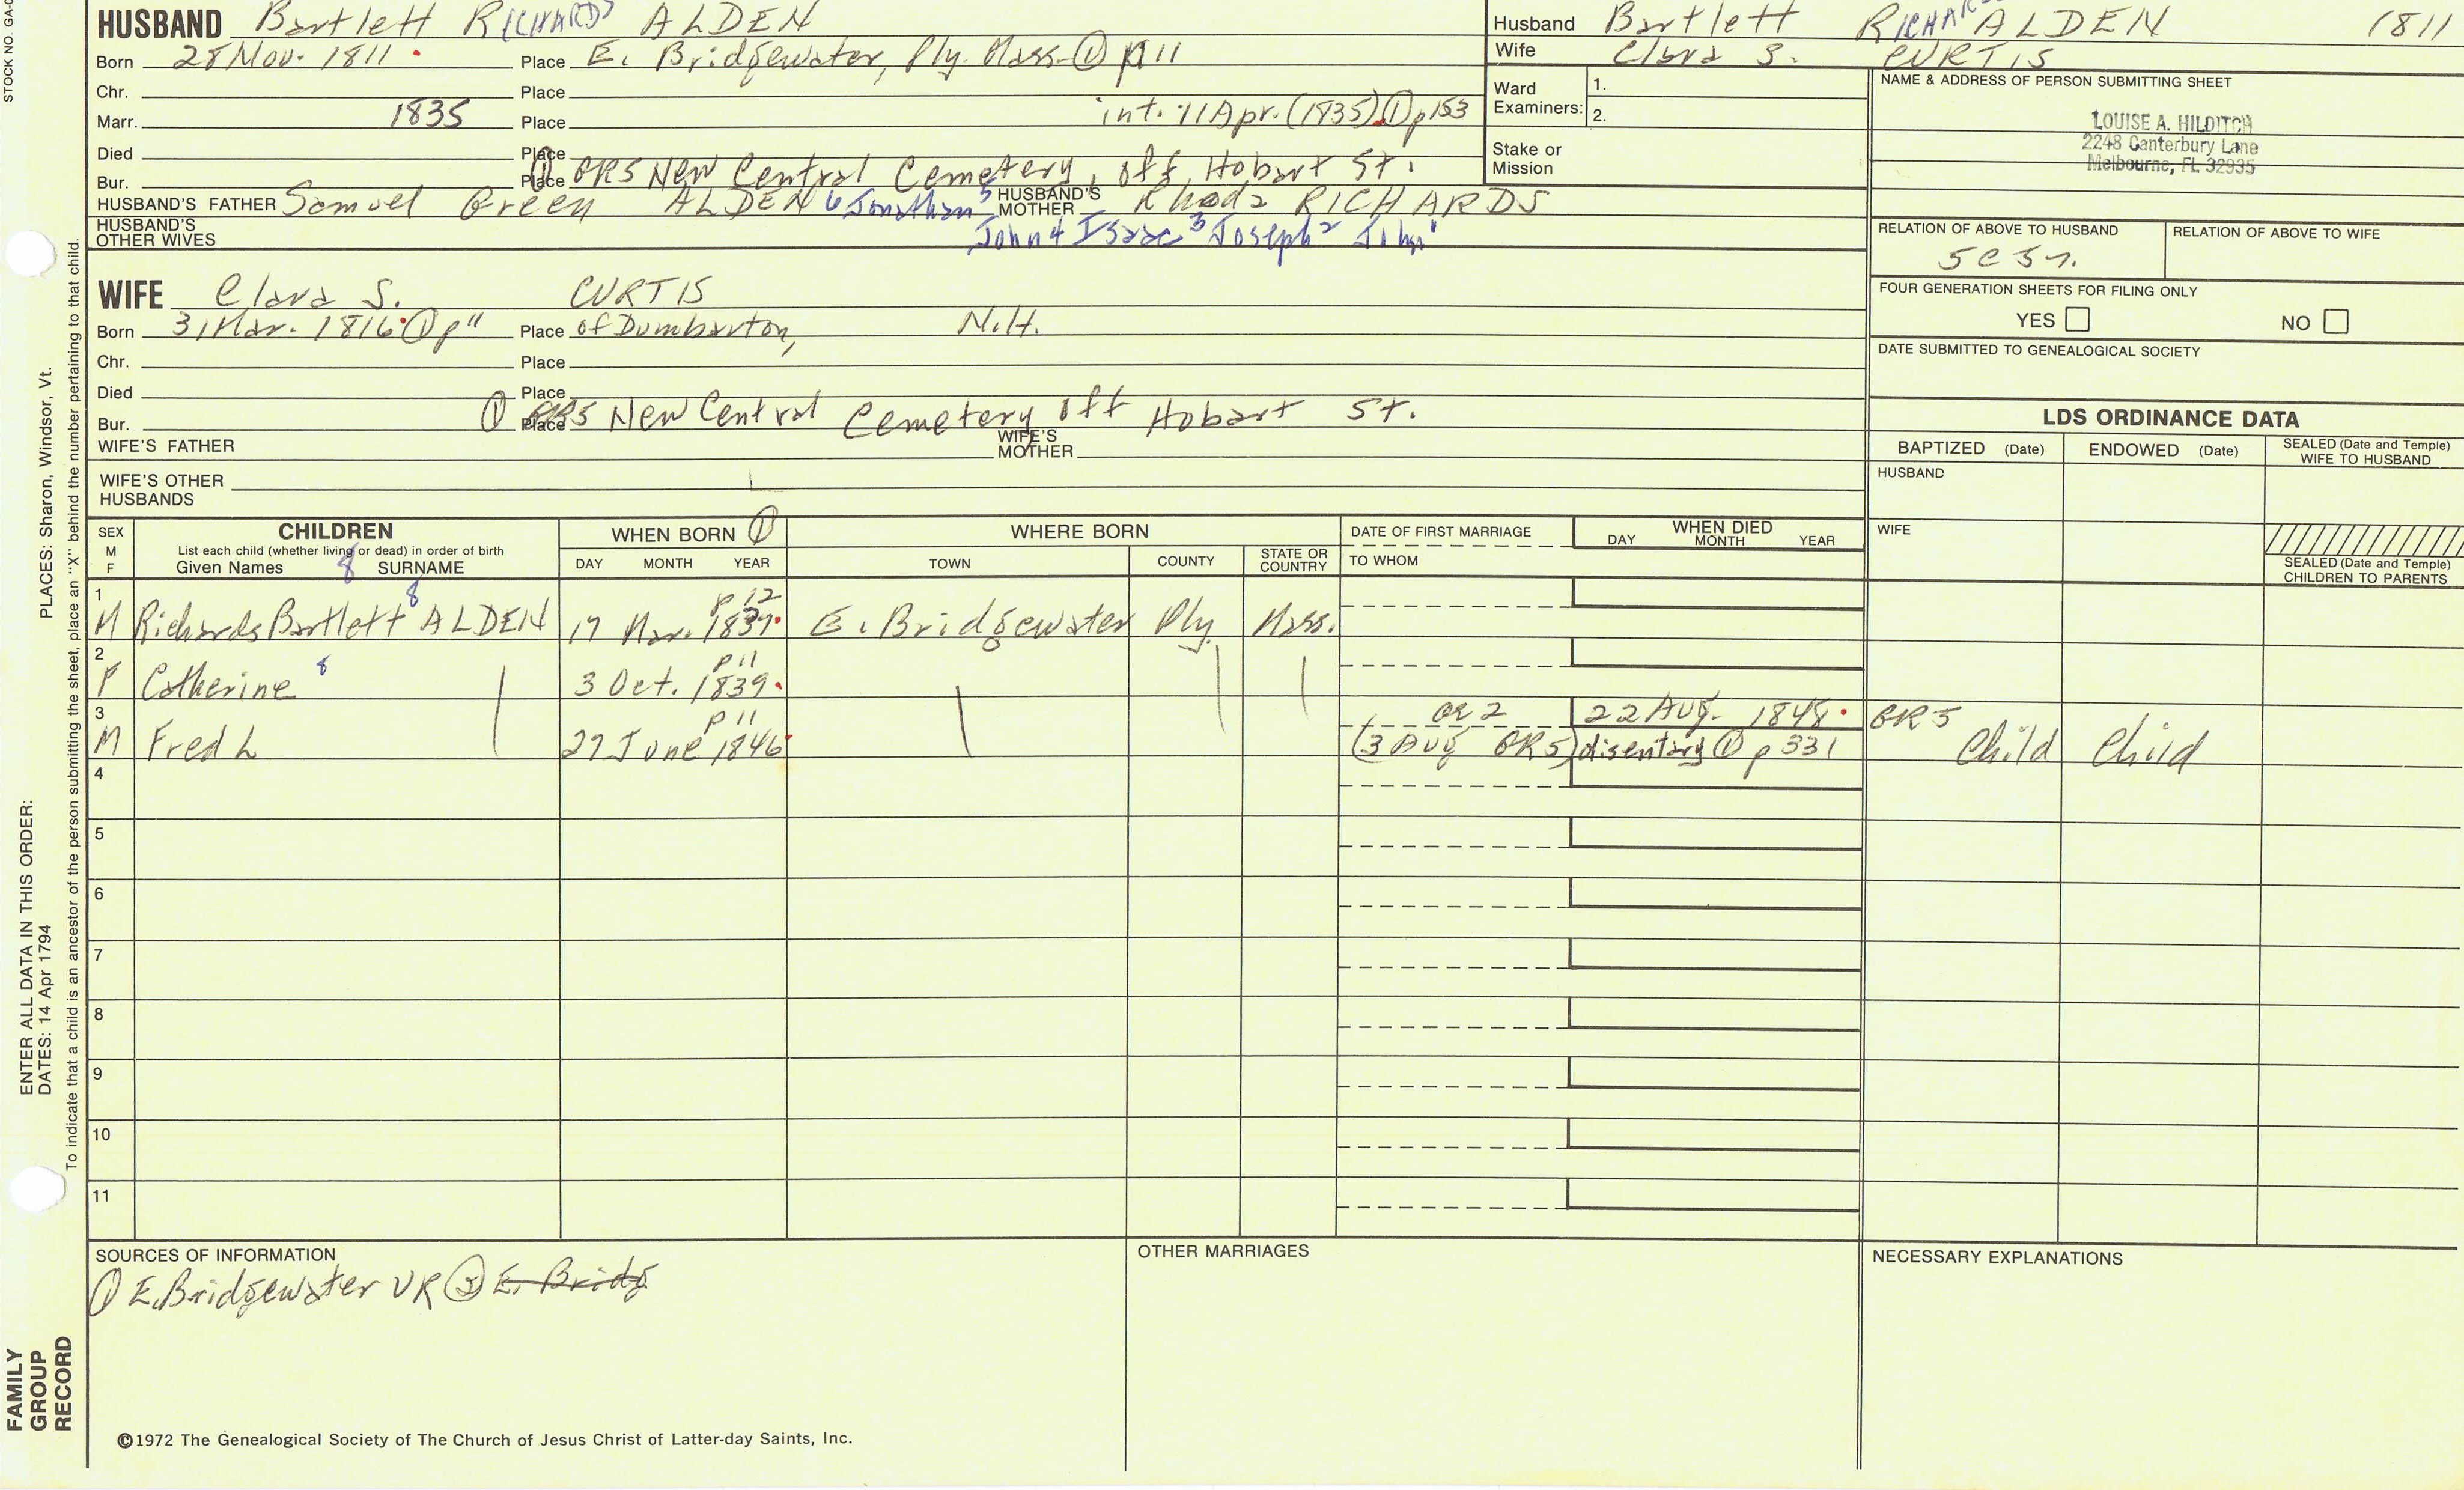 STOCK NO. GA-0
HUSBAND Bartlett RICHARDS ALDEN
Born 28 Nov. 1811 Place E. Bridgewater, Ply. Mass. ① p11
Chr. Place
Marr. 1835 Place int. 11 Apr. (1835) ① p153
Died Place
Bur. Place ① GR5 New Central Cemetery, off Hobart St.
HUSBAND'S FATHER Samuel Green ALDEN 6 Jonathan 5 HUSBAND'S MOTHER Rhoda RICHARDS
HUSBAND'S OTHER WIVES John 4 Isaac 3 Joseph 2 John 1
WIFE Clara S. CURTIS
Born 31 Mar. 1816 ① p11 Place of Dumbarton, N.H.
Chr. Place
Died Place
Bur. Place ① GR5 New Central Cemetery off Hobart St.
WIFE'S FATHER WIFE'S MOTHER
WIFE'S OTHER HUSBANDS
Husband Bartlett RICHARDS ALDEN 1811
Wife Clara S. CURTIS
Ward Examiners: 1.
2.
Stake or Mission
NAME & ADDRESS OF PERSON SUBMITTING SHEET
LOUISE A. HILDITCH
2248 Canterbury Lane
Melbourne, FL 32935
RELATION OF ABOVE TO HUSBAND RELATION OF ABOVE TO WIFE
FOUR GENERATION SHEETS FOR FILING ONLY
YES NO
DATE SUBMITTED TO GENEALOGICAL SOCIETY
LDS ORDINANCE DATA
BAPTIZED (Date) ENDOWED (Date) SEALED (Date and Temple) WIFE TO HUSBAND
HUSBAND
WIFE
SEALED (Date and Temple) CHILDREN TO PARENTS
SEX M F CHILDREN WHEN BORN ① WHERE BORN DATE OF FIRST MARRIAGE WHEN DIED
List each child (whether living or dead) in order of birth
Given Names 8 SURNAME DAY MONTH YEAR TOWN COUNTY STATE OR COUNTRY TO WHOM DAY MONTH YEAR
1 M Richards Bartlett 8 ALDEN 17 Mar. 1837 p12 E. Bridgewater Ply. Mass.
2 F Catherine 8 3 Oct. 1839 p11
3 M Fred L 27 June 1846 p11 or 2 22 Aug. 1848 GR5
(3 Aug GR5) disentary ① p331 Child Child
4
5
6
7
8
9
10
11
SOURCES OF INFORMATION
① E. Bridgewater VR ② E. Bridg
OTHER MARRIAGES
NECESSARY EXPLANATIONS
©1972 The Genealogical Society of The Church of Jesus Christ of Latter-day Saints, Inc.
FAMILY GROUP RECORD
ENTER ALL DATA IN THIS ORDER:
DATES: 14 Apr 1794 PLACES: Sharon, Windsor, Vt.
To indicate that a child is an ancestor of the person submitting the sheet, place an "X" behind the number pertaining to that child.